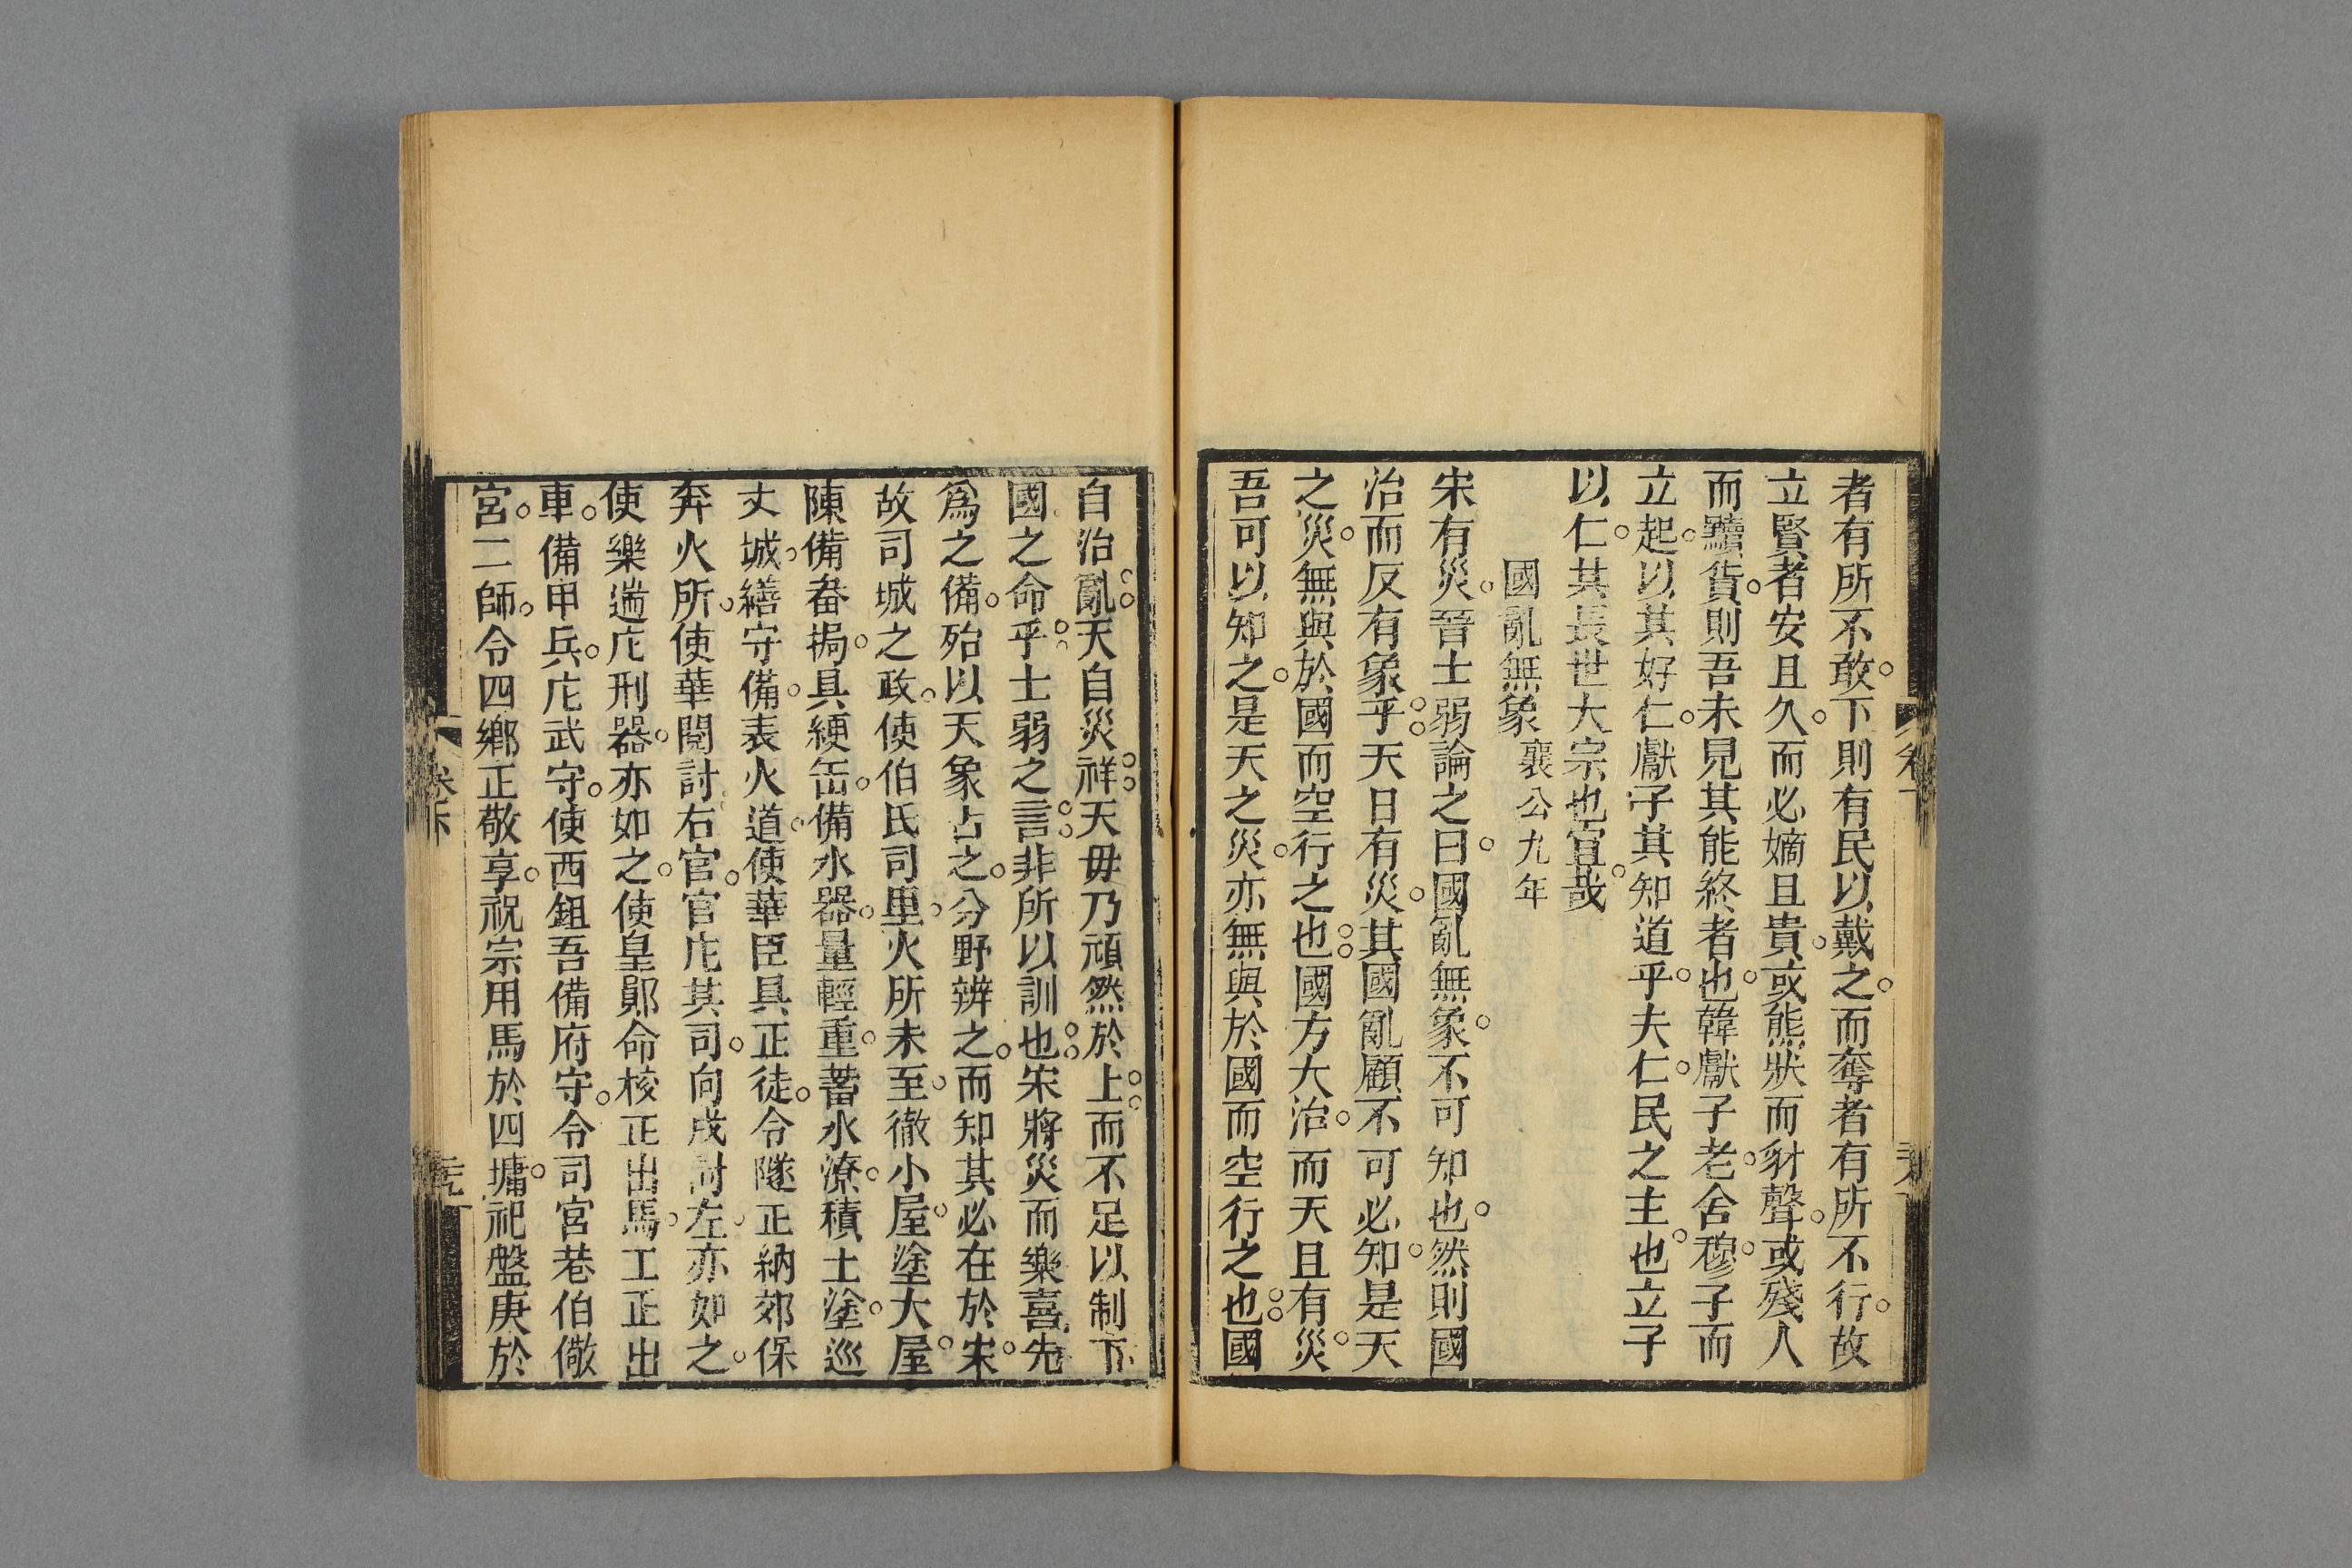 者有所不敢下則有民以戴之而奪者有所不行故
立賢者安且久而必嫡且貴或熊狀而豺聲或殘人
而黷貨則吾未見其能終者也韓獻子老舍穆子而
立起以其好仁獻子其知道乎夫仁民之主也立子
以仁其長世大宗也宜哉
國亂無象 襄公九年
宋有災晉士弱論之曰國亂無象不可知也然則國
治而反有象乎天日有災其國亂顧不可必知是天
之災無與於國而空行之也國方大治而天且有災
吾可以知之是天之災亦無與於國而空行之也國
自治亂天自災祥天毋乃頑然於上而不足以制下
國之命乎士弱之言非所以訓也宋將災而樂喜先
爲之備殆以天象占之分野辨之而知其必在於宋
故司城之政使伯氏司里火所未至徹小屋塗大屋
陳備畚挶具綆缶備水器量輕重蓄水潦積土塗巡
丈城繕守備表火道使華臣具正徒令隧正納郊保
奔火所使華閱討右官官庀其司向戌討左亦如之
使樂遄庀刑器亦如之使皇鄖命校正出馬工正出
車備甲兵庀武守使西鉏吾備府守令司宮巷伯儆
宮二師令四鄉正敬享祝宗用馬於四墉祀盤庚於
卷下